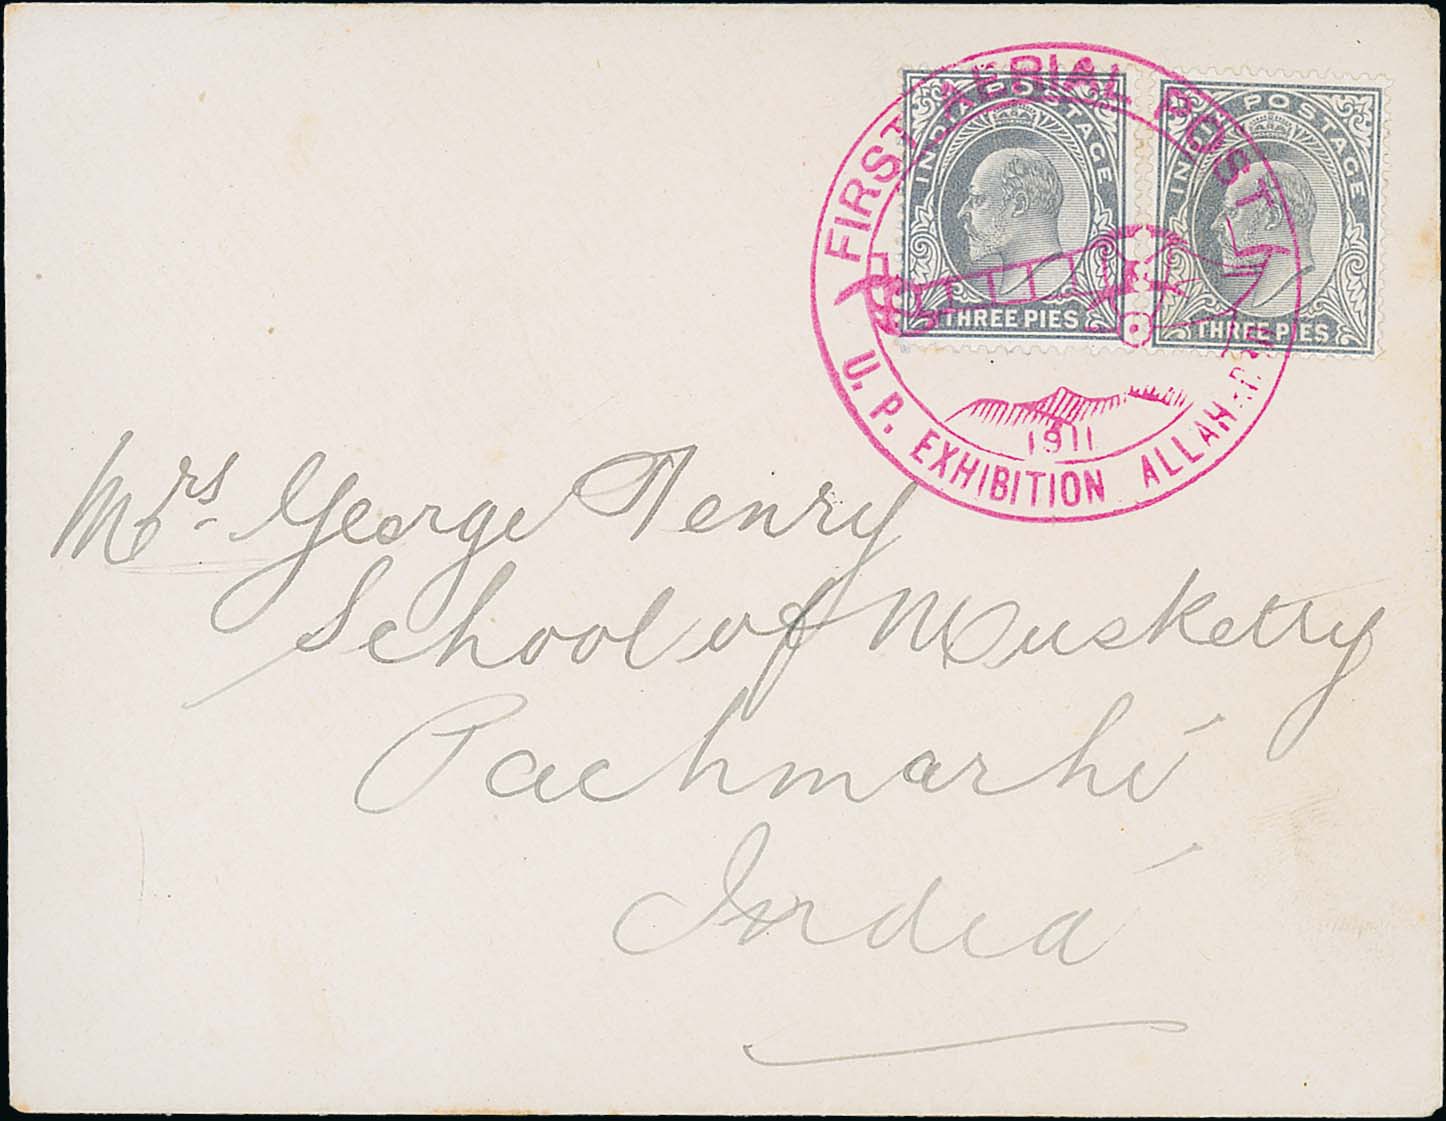 FIRST AERIAL POST
U. P. EXHIBITION ALLAHABAD
1911
INDIA POSTAGE
THREE PIES
INDIA POSTAGE
THREE PIES
Mrs. George Tenry
School of Musketry
Pachmarhi
India